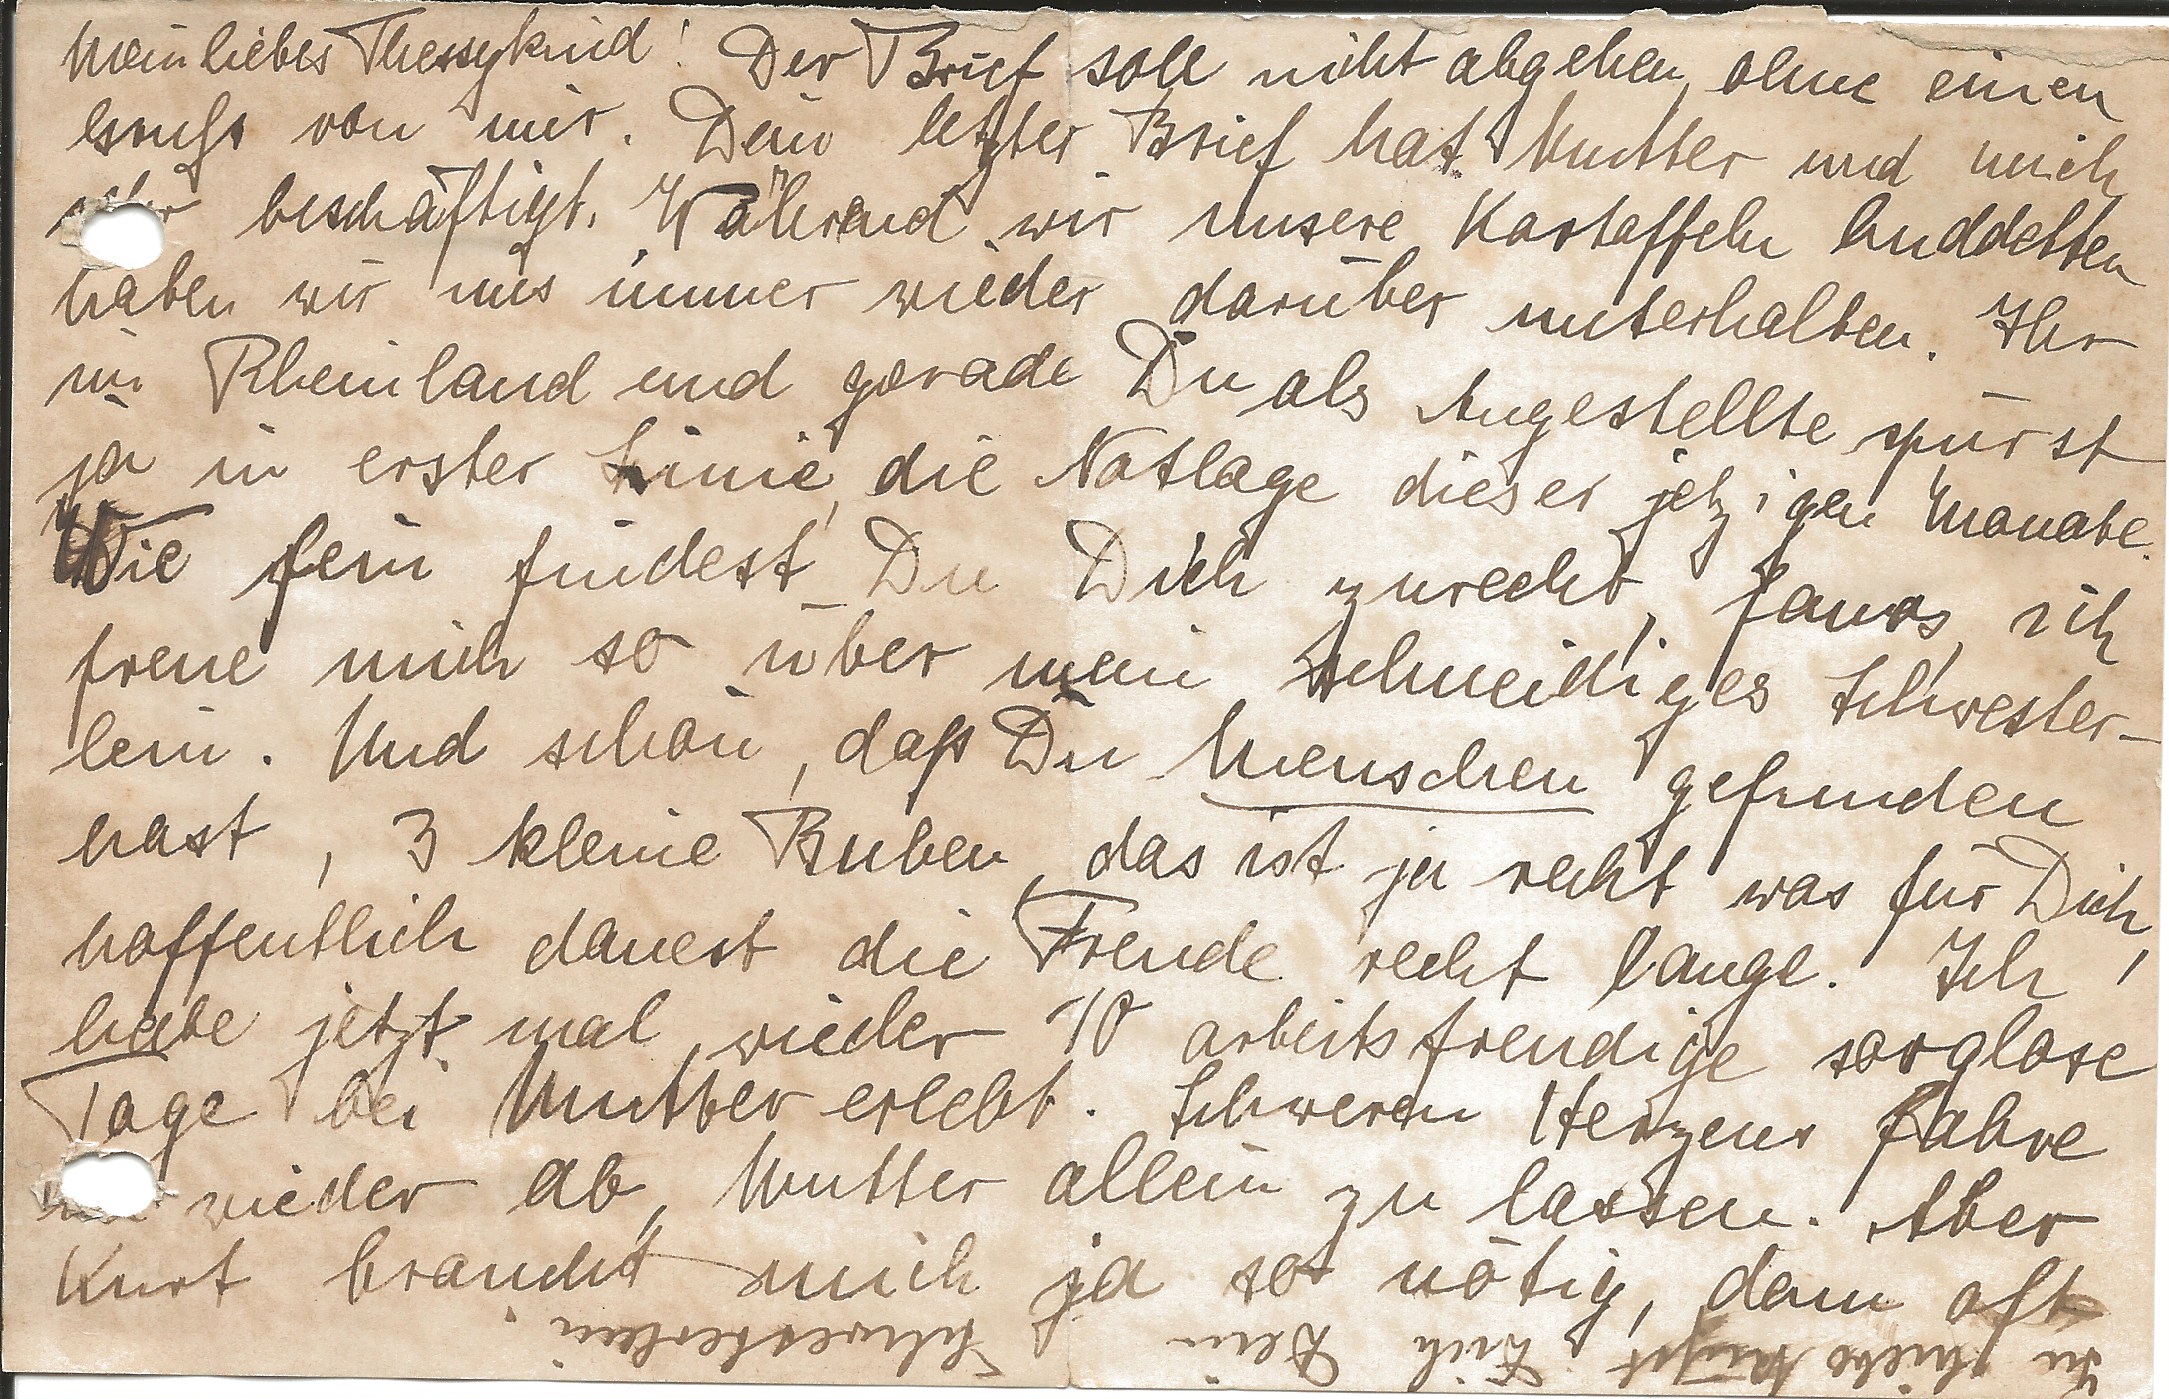 Mein liebes Thessykind! Der Brief soll nicht abgehen, ohne einen
Gruß von mir. Dein letzter Brief hat Mutter und mich
sehr beschäftigt. Während wir unsere Kartoffeln buddelten
haben wir uns immer wieder darüber unterhalten. Ihr
im Rheinland und gerade Du als Angestellte spürst
ja in erster Linie, die Notlage dieser jetzigen Monate.
Wie fein findest Du Dich zurecht, ich
freue mich so über mein schneidiges Schwester-
lein. Und schön, daß Du Menschen gefunden
hast, 3 kleine Buben, das ist ja recht was für Dich,
hoffentlich dauert die Freude recht lange. Ich
habe jetzt mal wieder 10 arbeitsfreudige sorglose
Tage bei Mutter erlebt. Schweren Herzens fahre
wieder ab, Mutter allein zu lassen. Aber
Kurt braucht mich ja so nötig, denn oft
In Liebe küßt Dich Dein
Schwesterlein.